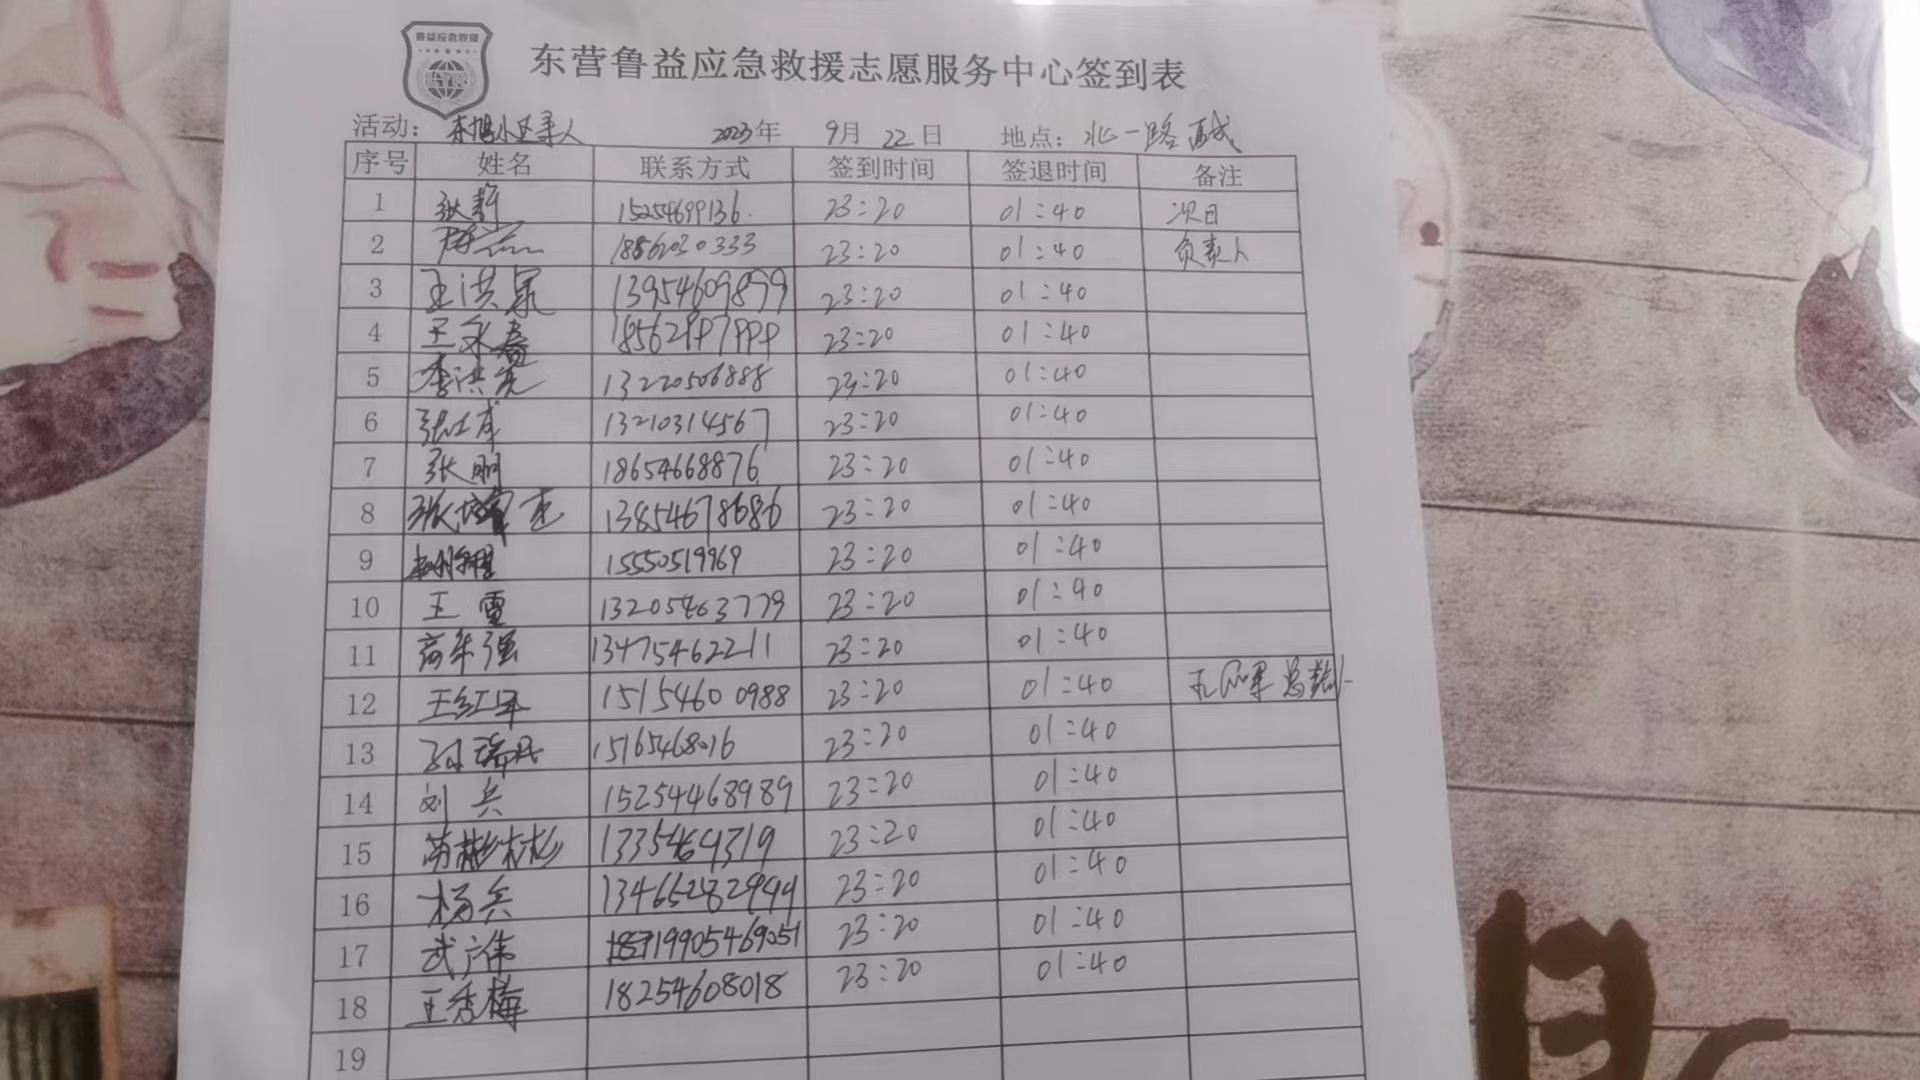 鲁益应急救援
LYR
东营鲁益应急救援志愿服务中心签到表
活动: 东旭小区寻人 2023年 9月 22日 地点: 北一路西城
序号 姓名 联系方式 签到时间 签退时间 备注
1 张静 15254699136 23:20 01:40 次日
2 18562030333 23:20 01:40 负责人
3 王洪泉 13954609899 23:20 01:40
4 王永春 18562997999 23:20 01:40
5 李洪亮 13220506888 23:20 01:40
6 13210314567 23:20 01:40
7 张朋 18654668876 23:20 01:40
8 13854678686 23:20 01:40
9 15550519969 23:20 01:40
10 王雪 13205463779 23:20 01:40
11 高年强 13475462211 23:20 01:40
12 王红军 15154600988 23:20 01:40
13 15165468016 23:20 01:40
14 刘兵 15254468989 23:20 01:40
15 1335464319 23:20 01:40
16 杨兵 13465282944 23:20 01:40
17 武广伟 19905469051 23:20 01:40
18 王秀梅 18254608018 23:20 01:40
19